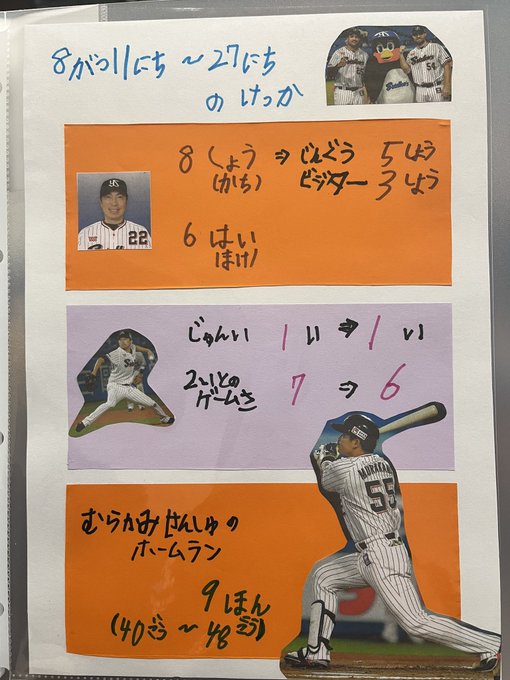 8がつ11にち〜27にち
のけっか
8しょう ⇒ じんぐう 5しょう
(かち) ビジター 3しょう
22
6はい
(まけ)
じゅんい 1い ⇒ 1い
2いとの
ゲームさ 7 ⇒ 6
MURAKAMI
55
むらかみせんしゅの
ホームラン
9ほん
(40ごう〜48ごう)